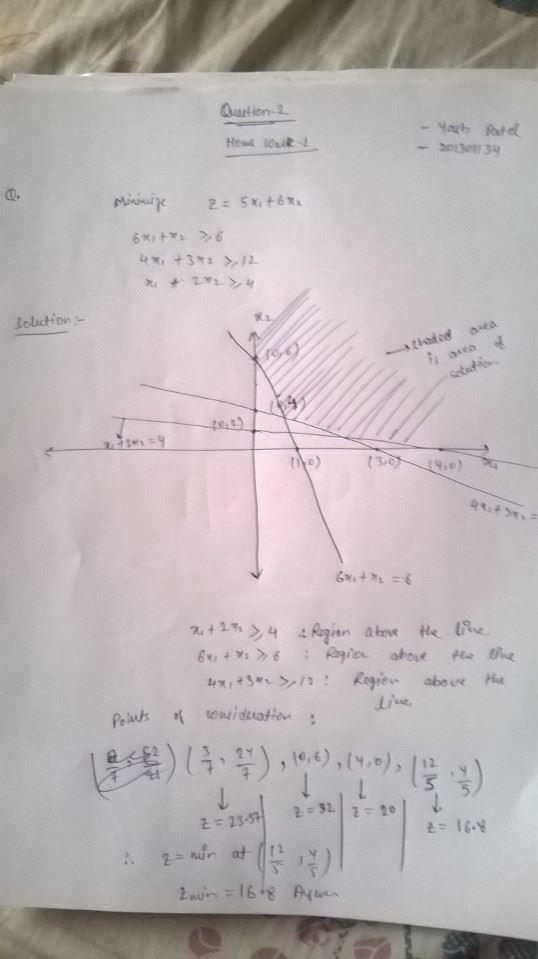 Question-2
Home Work-1
- Yash Patel
- 201301134
Q.
Minimize Z = 5x₁+6x₂
6x₁+x₂ ≥ 6
4x₁+3x₂ ≥ 12
x₁ + 2x₂ ≥ 4
Solution:-
x₂
(0,6)
→ shaded area
is area of
solution
(0,4)
(0,2)
x₁+2x₂=4
(1,0)
(3,0)
(4,0)
x₁
4x₁+3x₂=
6x₁+x₂=6
x₁+2x₂ ≥ 4 : Region above the line.
6x₁+x₂ ≥ 6 : Region above the line
4x₁+3x₂ ≥ 12 : Region above the
line.
Points of consideration :
(3/7, 24/7), (0,6), (4,0), (12/5, 4/5)
Z=23.57 Z=32 Z=20 Z=16.8
∴ Z=min at (12/5, 4/5)
Zmin = 16.8